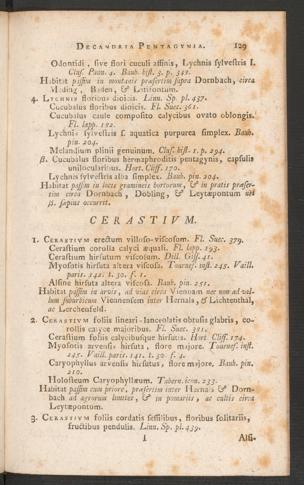 DECANDRIA PENTAGYNIA. 129
Odontidi, sive flori cuculi affinis, Lychnis sylvestris I.
Clus. Pann. 4. Bauh. hist. 3. p. 342.
Habitat passim in montosis præsertim supra Dornbach, circa
Mœdling, Baden, & Catisontum.
4. LYCHNIS floribus dioicis. Linn. Sp. pl. 437.
Cucubalus floribus dioicis. Fl. Suec. 361.
Cucubalus caule composito calycibus ovato oblongis.
Fl. lapp. 182.
Lychnis sylvestris s. aquatica purpurea simplex. Bauh.
pin. 204.
Melandium plinii genuinum. Clus. hist. 1. p. 294.
β. Cucubalus floribus hermaphroditis pentagynis, capsulis
unilocularibus. Hort. Cliff. 170.
Lychnis sylvestris alba simplex. Bauh. pin. 204.
Habitat passim in locis gramineis hortorum, & in pratis præser-
tim circa Dornbach, Döbling, & Leytæpontum ubi
β. sæpius occurrit.
CERASTIVM.
1. CERASTIVM erectum villoso-viscosum. Fl. Suec. 379.
Cerastium corolla calyci æquali. Fl. lapp. 193.
Cerastium hirsutum viscosum. Dill. Giss. 41.
Myosotis hirsuta altera viscosa. Tournef. inst. 245. Vaill.
paris. 142. t. 30. f. 1.
Alsine hirsuta altera viscosa. Bauh. pin. 251.
Habitat passim in arvis, ad vias circa Viennam nec non ad val-
lum suburbicum Viennensem inter Hernals, & Lichtenthal,
ac Lerchenfeld.
2. CERASTIVM foliis lineari-lanceolatis obtusis glabris, co-
rollis calyce majoribus. Fl. Suec. 381.
Cerastium foliis calycibusque hirsutis. Hort. Cliff. 174.
Myosotis arvensis hirsuta, flore majore. Tournef. inst.
245. Vaill. paris. 141. t. 30. f. 4.
Caryophyllus arvensis hirsutus, flore majore. Bauh. pin.
210.
Holosteum Caryophyllæum. Tabern. icon. 233.
Habitat passim cum priore, præsertim inter Hernals & Dorn-
bach ad agrorum limites, & in pomariis, ac cultis circa
Leytæpontum.
3. CERASTIVM foliis cordatis sessilibus, floribus solitariis,
fructibus pendulis. Linn. Sp. pl. 439.
I Alsi-